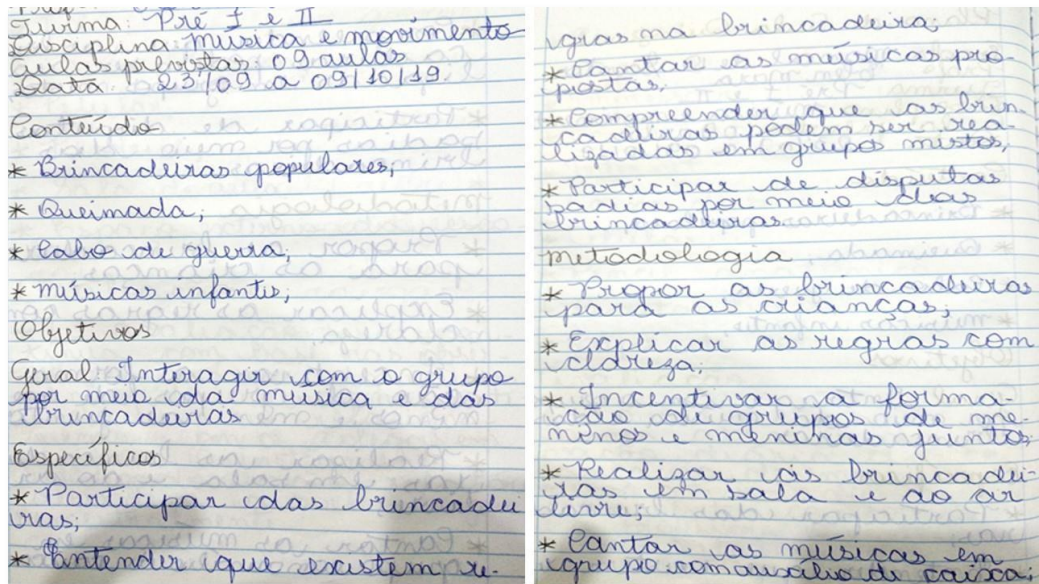 Turma: Pré I e II
Disciplina: música e movimento
Aulas previstas: 09 aulas
Data 23/09 a 09/10/19
Conteúdo
* Brincadeiras populares;
* Queimada;
* Cabo de guerra;
* músicas infantis;
Objetivos
Geral Interagir com o grupo
por meio da musica e das
brincadeiras
Específicos
* Participar das brincadei
ras;
* Entender que existem re-
gras na brincadeira;
* Cantar as músicas pro-
postas;
* Compreender que as brin
cadeiras podem ser rea-
lizadas em grupos mistos;
* Participar de disputas
sadias por meio das
brincadeiras.
metodologia
* Propor as brincadeiras
para as crianças;
* Explicar as regras com
clareza;
* Incentivar a forma-
ção de grupos de me-
ninos e meninas juntos;
* Realizar as brincadei-
ras em sala e ao ar
livre;
* Cantar as músicas em
grupo com auxílio de caixa;